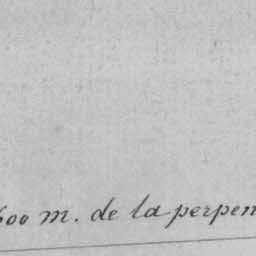 600 m. de la perpen